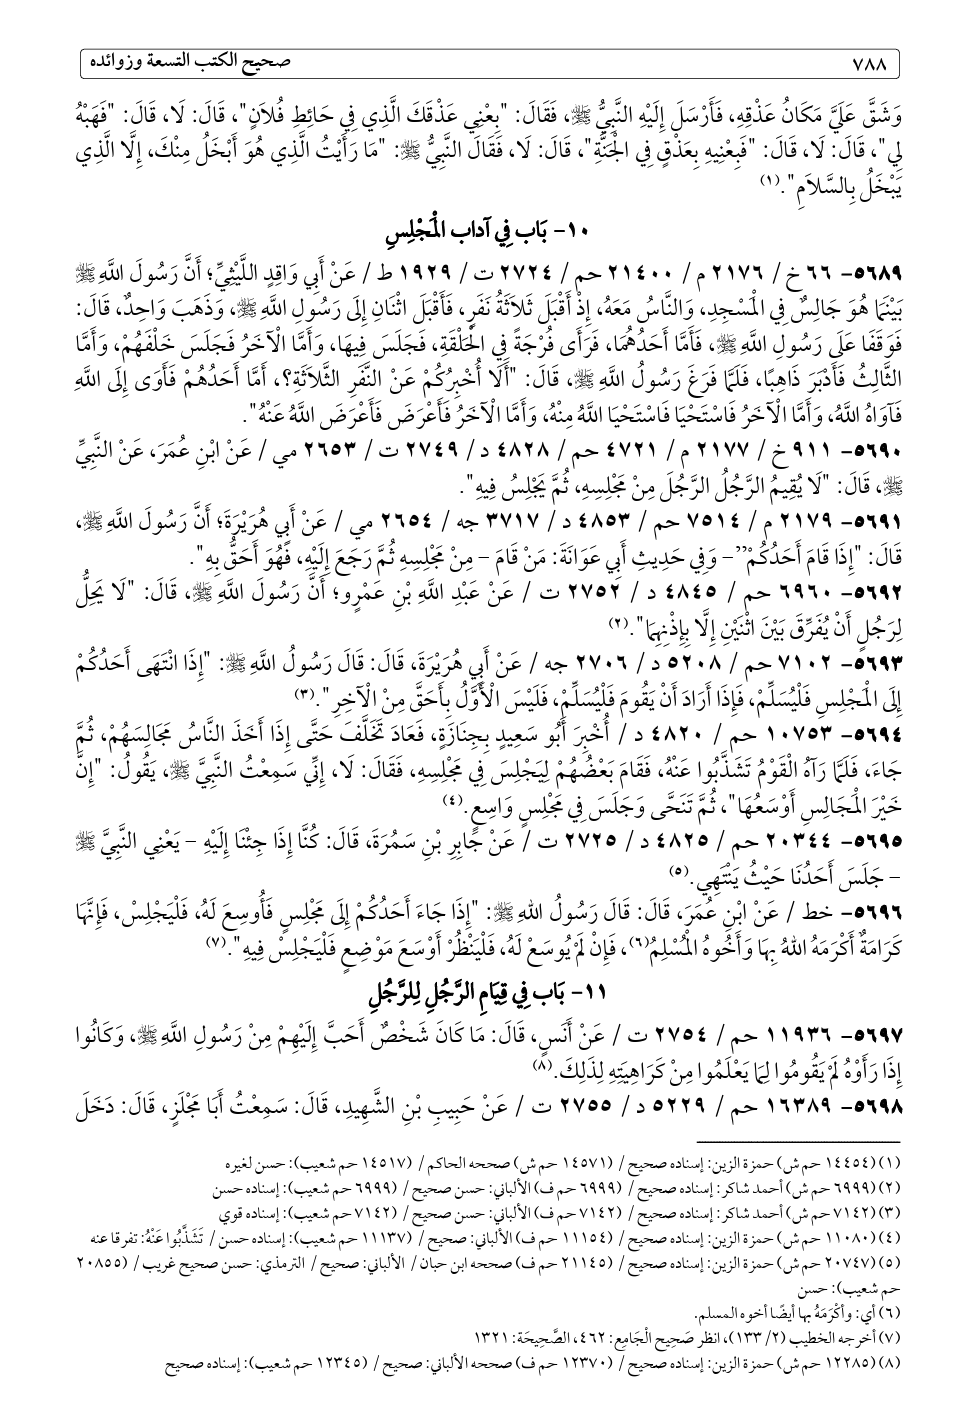 ٧٨٨ صحيح الكتب التسعة وزوائده
وَشَقَّ عَلَيَّ مَكَانُ عَذْقِهِ، فَأَرْسَلَ إِلَيْهِ النَّبِيُّ ﷺ، فَقَالَ: "بِعْنِي عَذْقَكَ الَّذِي فِي حَائِطِ فُلَانٍ"، قَالَ: لَا، قَالَ: "فَهَبْهُ
لِي"، قَالَ: لَا، قَالَ: "فَبِعْنِيهِ بِعَذْقٍ فِي الْجَنَّةِ"، قَالَ: لَا، فَقَالَ النَّبِيُّ ﷺ: "مَا رَأَيْتُ الَّذِي هُوَ أَبْخَلُ مِنْكَ، إِلَّا الَّذِي
يَبْخَلُ بِالسَّلَامِ".(١)
١٠- بَاب فِي آدَابِ الْمَجْلِسِ
٥٦٨٩- ٦٦ خ/ ٢١٧٦ م/ ٢١٤٠٠ حم/ ٢٧٢٤ ت/ ١٩٢٩ ط/ عَنْ أَبِي وَاقِدٍ اللَّيْثِيِّ؛ أَنَّ رَسُولَ اللَّهِ ﷺ
بَيْنَمَا هُوَ جَالِسٌ فِي الْمَسْجِدِ، وَالنَّاسُ مَعَهُ، إِذْ أَقْبَلَ ثَلَاثَةُ نَفَرٍ، فَأَقْبَلَ اثْنَانِ إِلَى رَسُولِ اللَّهِ ﷺ، وَذَهَبَ وَاحِدٌ، قَالَ:
فَوَقَفَا عَلَى رَسُولِ اللَّهِ ﷺ، فَأَمَّا أَحَدُهُمَا، فَرَأَى فُرْجَةً فِي الْحَلْقَةِ، فَجَلَسَ فِيهَا، وَأَمَّا الْآخَرُ فَجَلَسَ خَلْفَهُمْ، وَأَمَّا
الثَّالِثُ فَأَدْبَرَ ذَاهِبًا، فَلَمَّا فَرَغَ رَسُولُ اللَّهِ ﷺ، قَالَ: "أَلَا أُخْبِرُكُمْ عَنْ النَّفَرِ الثَّلَاثَةِ؟، أَمَّا أَحَدُهُمْ فَأَوَى إِلَى اللَّهِ
فَآوَاهُ اللَّهُ، وَأَمَّا الْآخَرُ فَاسْتَحْيَا فَاسْتَحْيَا اللَّهُ مِنْهُ، وَأَمَّا الْآخَرُ فَأَعْرَضَ فَأَعْرَضَ اللَّهُ عَنْهُ".
٥٦٩٠- ٩١١ خ/ ٢١٧٧ م/ ٤٧٢١ حم/ ٤٨٢٨ د/ ٢٧٤٩ ت/ ٢٦٥٣ مي/ عَنْ ابْنِ عُمَرَ، عَنْ النَّبِيِّ
ﷺ، قَالَ: "لَا يُقِيمُ الرَّجُلُ الرَّجُلَ مِنْ مَجْلِسِهِ، ثُمَّ يَجْلِسُ فِيهِ".
٥٦٩١- ٢١٧٩ م/ ٧٥١٤ حم/ ٤٨٥٣ د/ ٣٧١٧ جه/ ٢٦٥٤ مي/ عَنْ أَبِي هُرَيْرَةَ؛ أَنَّ رَسُولَ اللَّهِ ﷺ،
قَالَ: "إِذَا قَامَ أَحَدُكُمْ"- وَفِي حَدِيثِ أَبِي عَوَانَةَ: مَنْ قَامَ - مِنْ مَجْلِسِهِ ثُمَّ رَجَعَ إِلَيْهِ، فَهُوَ أَحَقُّ بِهِ".
٥٦٩٢- ٦٩٦٠ حم/ ٤٨٤٥ د/ ٢٧٥٢ ت/ عَنْ عَبْدِ اللَّهِ بْنِ عَمْرٍو؛ أَنَّ رَسُولَ اللَّهِ ﷺ، قَالَ: "لَا يَحِلُّ
لِرَجُلٍ أَنْ يُفَرِّقَ بَيْنَ اثْنَيْنِ إِلَّا بِإِذْنِهِمَا".(٢)
٥٦٩٣- ٧١٠٢ حم/ ٥٢٠٨ د/ ٢٧٠٦ جه/ عَنْ أَبِي هُرَيْرَةَ، قَالَ: قَالَ رَسُولُ اللَّهِ ﷺ: "إِذَا انْتَهَى أَحَدُكُمْ
إِلَى الْمَجْلِسِ فَلْيُسَلِّمْ، فَإِذَا أَرَادَ أَنْ يَقُومَ فَلْيُسَلِّمْ، فَلَيْسَ الْأَوَّلُ بِأَحَقَّ مِنْ الْآخِرِ".(٣)
٥٦٩٤- ١٠٧٥٣ حم/ ٤٨٢٠ د/ أُخْبِرَ أَبُو سَعِيدٍ بِجِنَازَةٍ، فَعَادَ تَخَلَّفَ حَتَّى إِذَا أَخَذَ النَّاسُ مَجَالِسَهُمْ، ثُمَّ
جَاءَ، فَلَمَّا رَآهُ الْقَوْمُ تَشَذَّبُوا عَنْهُ، فَقَامَ بَعْضُهُمْ لِيَجْلِسَ فِي مَجْلِسِهِ، فَقَالَ: لَا، إِنِّي سَمِعْتُ النَّبِيَّ ﷺ، يَقُولُ: "إِنَّ
خَيْرَ الْمَجَالِسِ أَوْسَعُهَا"، ثُمَّ تَنَحَّى وَجَلَسَ فِي مَجْلِسٍ وَاسِعٍ.(٤)
٥٦٩٥- ٢٠٣٤٤ حم/ ٤٨٢٥ د/ ٢٧٢٥ ت/ عَنْ جَابِرِ بْنِ سَمُرَةَ، قَالَ: كُنَّا إِذَا جِئْنَا إِلَيْهِ - يَعْنِي النَّبِيَّ ﷺ
- جَلَسَ أَحَدُنَا حَيْثُ يَنْتَهِي.(٥)
٥٦٩٦- خط/ عَنْ ابْنِ عُمَرَ، قَالَ: قَالَ رَسُولُ اللهِ ﷺ: "إِذَا جَاءَ أَحَدُكُمْ إِلَى مَجْلِسٍ فَأُوسِعَ لَهُ، فَلْيَجْلِسْ، فَإِنَّهَا
كَرَامَةٌ أَكْرَمَهُ اللهُ بِهَا وَأَخُوهُ الْمُسْلِمُ(٦)، فَإِنْ لَمْ يُوسَعْ لَهُ، فَلْيَنْظُرْ أَوْسَعَ مَوْضِعٍ فَلْيَجْلِسْ فِيهِ".(٧)
١١- بَاب فِي قِيَامِ الرَّجُلِ لِلرَّجُلِ
٥٦٩٧- ١١٩٣٦ حم/ ٢٧٥٤ ت/ عَنْ أَنَسٍ، قَالَ: مَا كَانَ شَخْصٌ أَحَبَّ إِلَيْهِمْ مِنْ رَسُولِ اللَّهِ ﷺ، وَكَانُوا
إِذَا رَأَوْهُ لَمْ يَقُومُوا لِمَا يَعْلَمُوا مِنْ كَرَاهِيَتِهِ لِذَلِكَ.(٨)
٥٦٩٨- ١٦٣٨٩ حم/ ٥٢٢٩ د/ ٢٧٥٥ ت/ عَنْ حَبِيبِ بْنِ الشَّهِيدِ، قَالَ: سَمِعْتُ أَبَا مِجْلَزٍ، قَالَ: دَخَلَ
(١) (١٤٤٥٤ حم ش) حمزة الزين: إسناده صحيح/ (١٤٥٧١ حم ش) صححه الحاكم/ (١٤٥١٧ حم شعيب): حسن لغيره
(٢) (٦٩٩٩ حم ش) أحمد شاكر: إسناده صحيح/ (٦٩٩٩ حم ف) الألباني: حسن صحيح/ (٦٩٩٩ حم شعيب): إسناده حسن
(٣) (٧١٤٢ حم ش) أحمد شاكر: إسناده صحيح/ (٧١٤٢ حم ف) الألباني: حسن صحيح/ (٧١٤٢ حم شعيب): إسناده قوي
(٤) (١١٠٨٠ حم ش) حمزة الزين: إسناده صحيح/ (١١١٥٤ حم ف) الألباني: صحيح/ (١١١٣٧ حم شعيب): إسناده حسن/ تَشَذَّبُوا عَنْهُ: تفرقا عنه
(٥) (٢٠٧٤٧ حم ش) حمزة الزين: إسناده صحيح/ (٢١١٤٥ حم ف) صححه ابن حبان/ الألباني: صحيح/ الترمذي: حسن صحيح غريب/ (٢٠٨٥٥
حم شعيب): حسن
(٦) أي: وأكْرَمَهُ بها أيضًا أخوه المسلم.
(٧) أخرجه الخطيب (٢/ ١٣٣)، انظر صَحِيح الْجَامِع: ٤٦٢، الصَّحِيحَة: ١٣٢١
(٨) (١٢٢٨٥ حم ش) حمزة الزين: إسناده صحيح/ (١٢٣٧٠ حم ف) صححه الألباني: صحيح/ (١٢٣٤٥ حم شعيب): إسناده صحيح